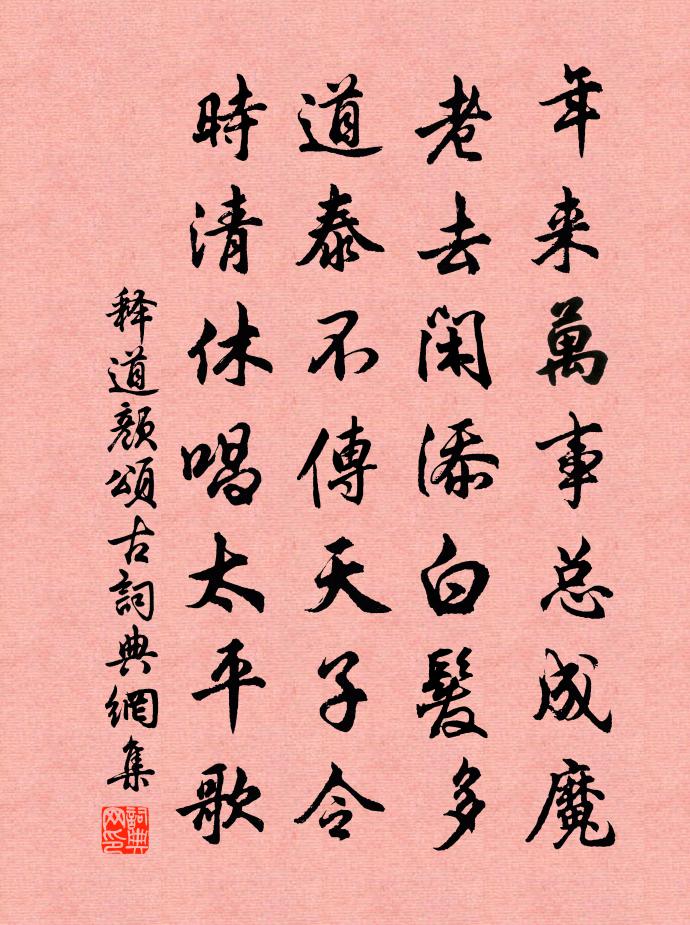 年来萬事总成魔
老去闲添白髮多
道泰不傳天子令
時清休唱太平歌
释道颜頌古詞典網集
詞典网印